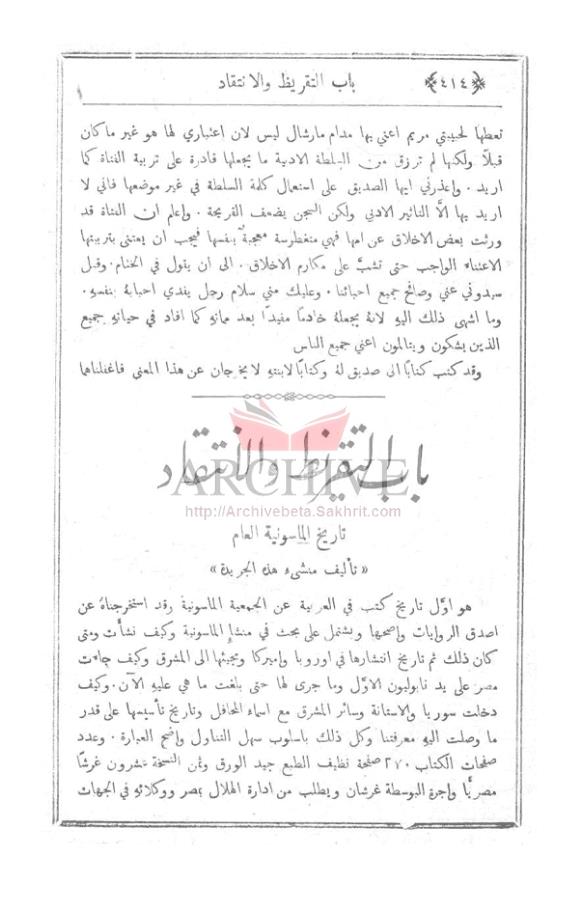 ﴿٤١٤﴾ باب التقريظ والانتقاد
تعطها لحبيبتي مريم اعني بها مدام مارشال ليس لان اعتباري لها هو غير ما كان
قبلاً ولكنها لم ترزق من السلطة الادبية ما يجعلها قادرة على تربية الفتاة كما
اريد . واعذرني ايها الصديق على استعمال كلمة السلطة في غير موضعها فاني لا
اريد بها الاَّ التاثير الادبي ولكن السجن يضعف القريحة . واعلم ان الفتاة قد
ورثت بعض الاخلاق عن امها فهي متغطرسة معجبة بنفسها فيجب ان يعتنى بتربيتها
الاعتناء الواجب حتى تشبَّ على مكارم الاخلاق . الى ان يقول في الختام . وقبل
سيدوني عني وصافح جميع احبائنا . وعليك مني سلام رجل يفدي احبابهُ بنفسهِ .
وما اشهى ذلك اليهِ لانهُ يجعلهُ خادمًا مفيدًا بعد مماتهِ كما افاد في حياتهِ جميع
الذين يشكون ويتالمون اعني جميع الناس
وقد كتب كتابًا الى صديق لهُ وكتابًا لابنتهِ لا يخرجان عن هذا المعنى فاغفلناهما
باب التقريظ والانتقاد
ARCHIVE
http://Archivebeta.Sakhrit.com
تاريخ الماسونية العام
« تأليف منشىء هذه الجريدة »
هو اوَّل تاريخ كتب في العربية عن الجمعية الماسونية وقد استخرجناهُ عن
اصدق الروايات واصحها ويشتمل على بحث في منشإ الماسونية وكيف نشأت ومتى
كان ذلك ثم تاريخ انتشارها في اوروبا واميركا ومجيئها الى المشرق وكيف جاءت
مصر على يد نابوليون الاوَّل وما جرى لها حتى بلغت ما هي عليهِ الآن . وكيف
دخلت سوريا والاستانة وسائر المشرق مع اسماء المحافل وتاريخ تأسيسها على قدر
ما وصلت اليهِ معرفتنا وكل ذلك باسلوب سهل التناول واضح العبارة . وعدد
صفحات الكتاب ٢٧٠ صفحة نظيف الطبع جيد الورق وثمن النسخة عشرون غرشًا
مصريًّا واجرة البوسطة غرشان ويطلب من ادارة الهلال بمصر ووكلائهِ في الجهات